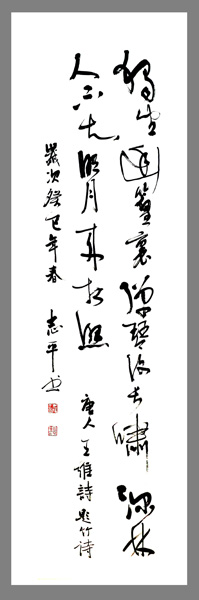 獨坐幽篁裏彈琴復長嘯深林
人不知明月來相照
唐人王維詩題竹詩
歲次癸巳年春
志平书